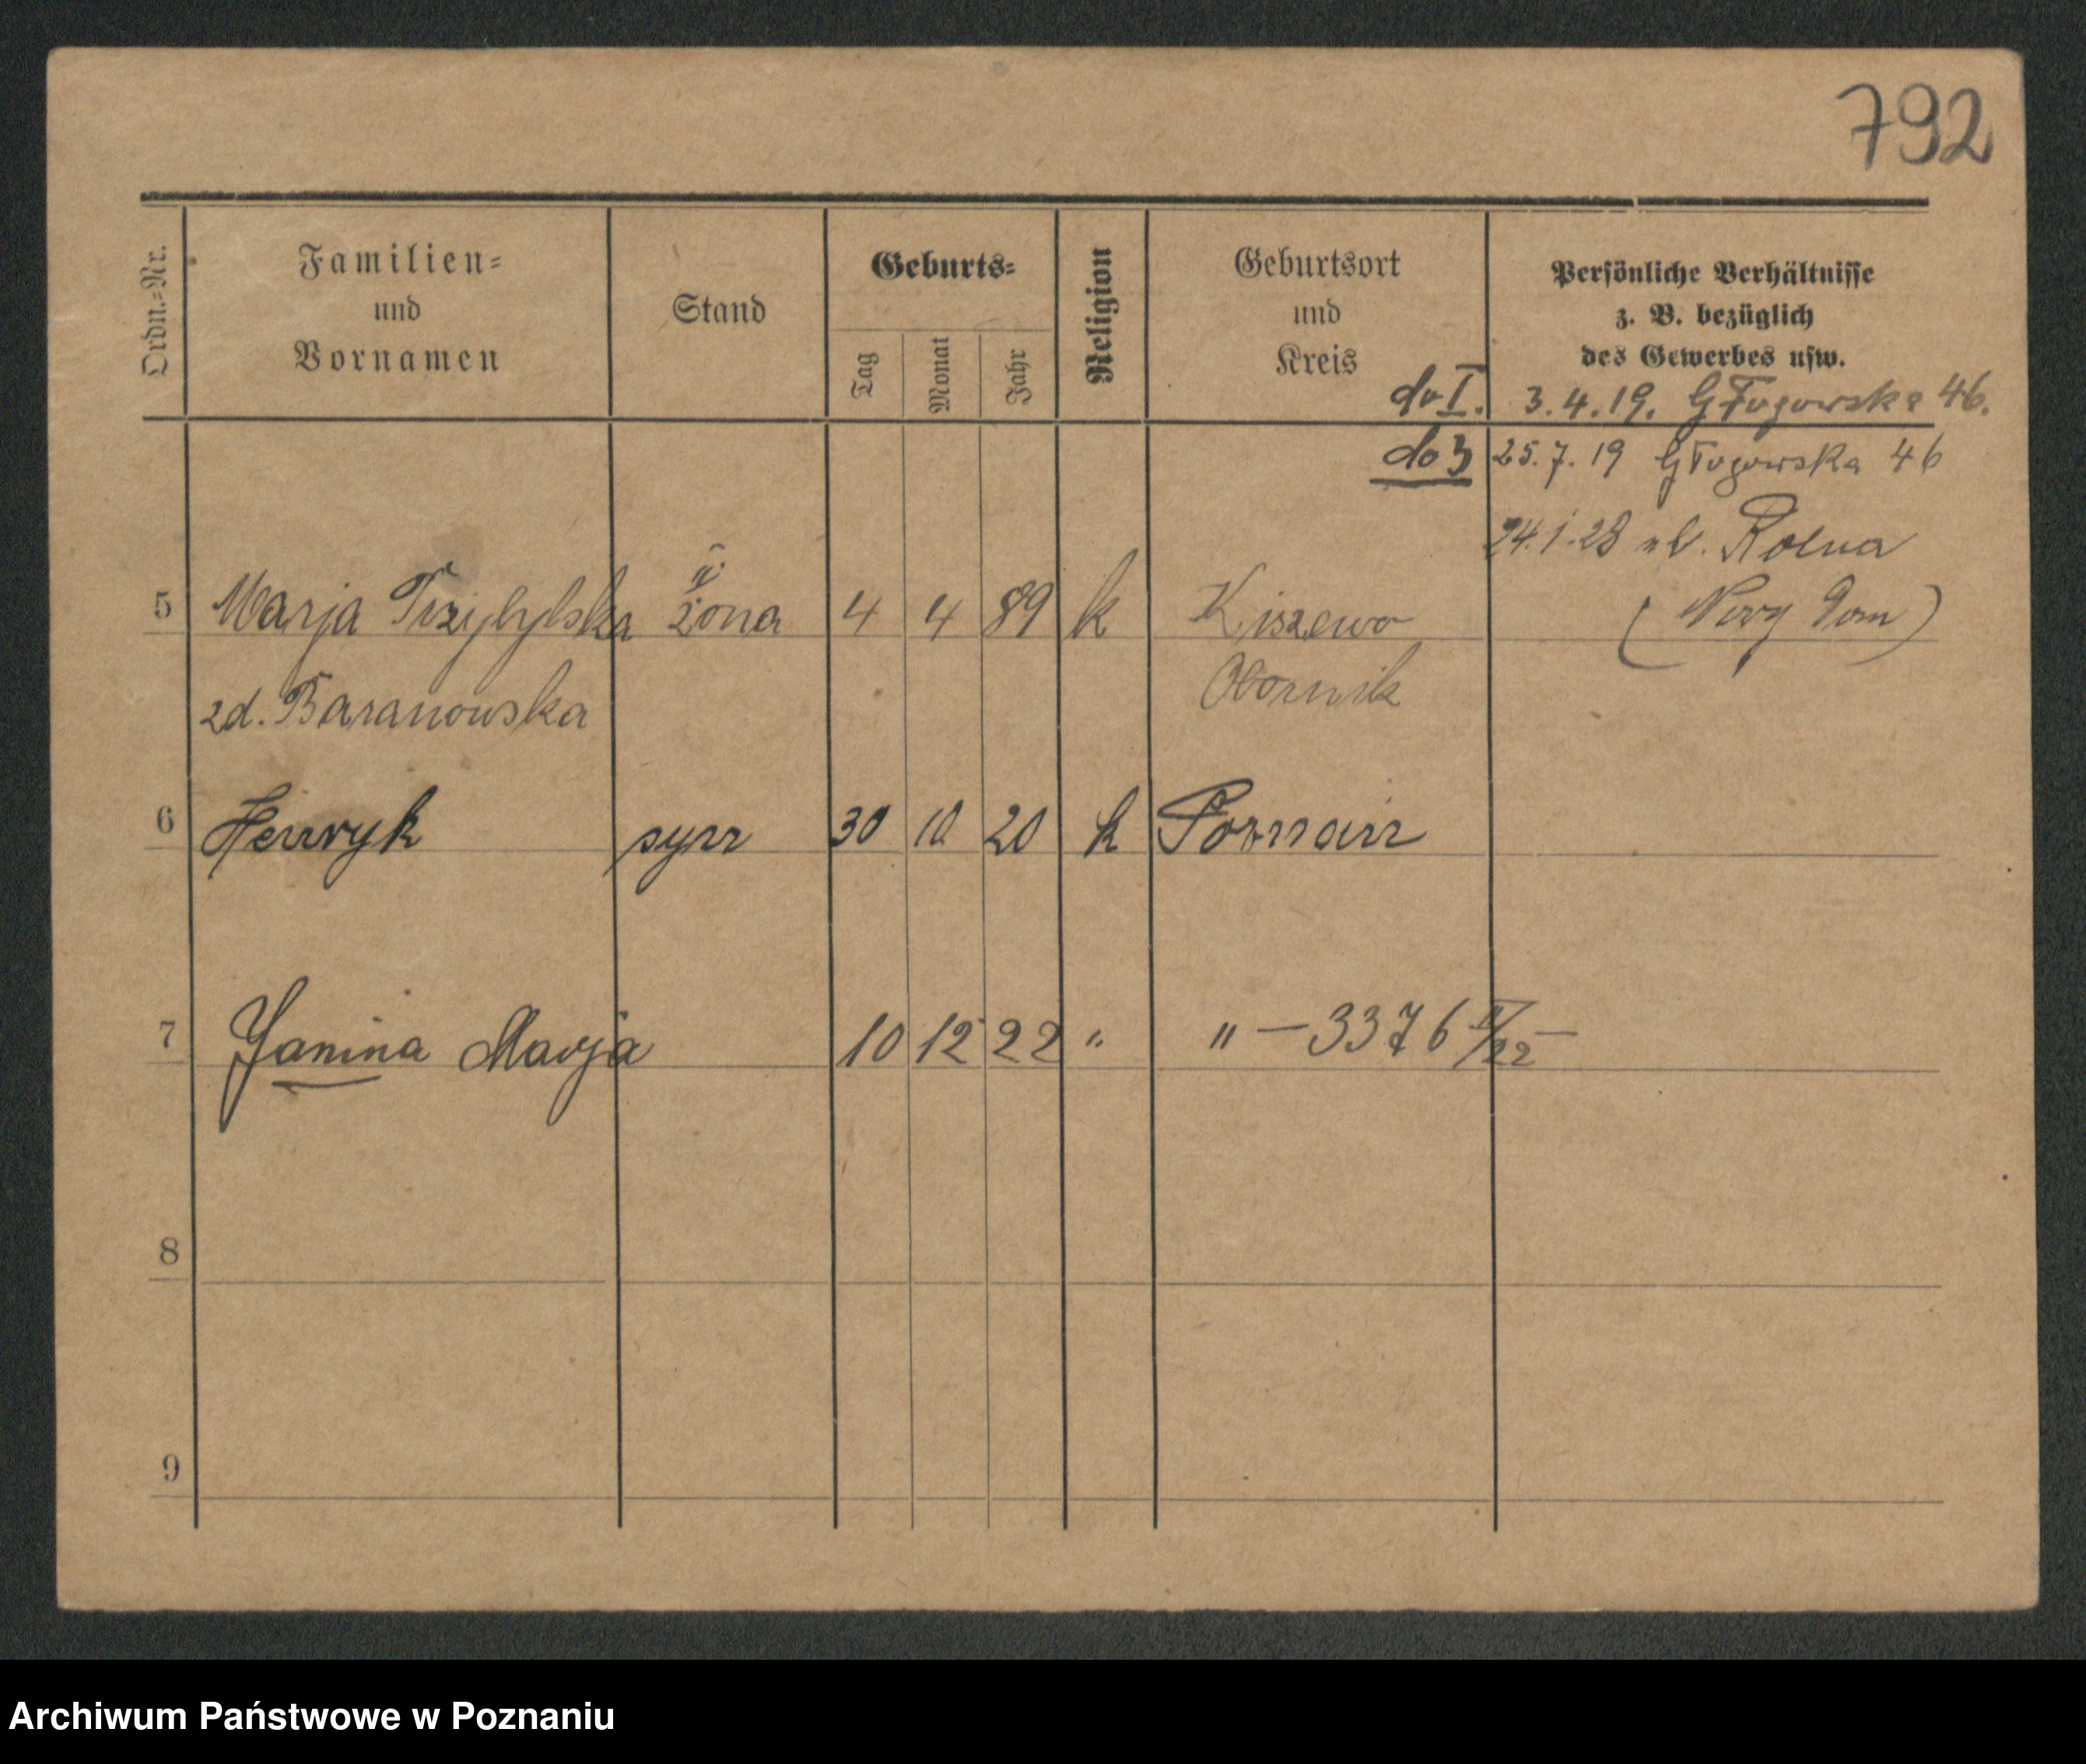 792
Ordn.=Nr.
Familien=
und
Vornamen
Stand
Geburts=
Tag
Monat
Jahr
Religion
Geburtsort
und
Kreis
Persönliche Verhältnisse
z. B. bezüglich
des Gewerbes usw.
do I. 3.4.19. Głogowska 46.
do 3 25.7.19 Głogowska 46
24.1.28 ul. Rolna
(Nowy Dom)
5 Marja Przybylska II żona 4 4 89 k Kiszewo
zd. Baranowska Obornik
6 Henryk syn 30 10 20 k Poznań
7 Janina Marja 10 12 22 " " — 3376 II/22 —
8
9
Archiwum Państwowe w Poznaniu